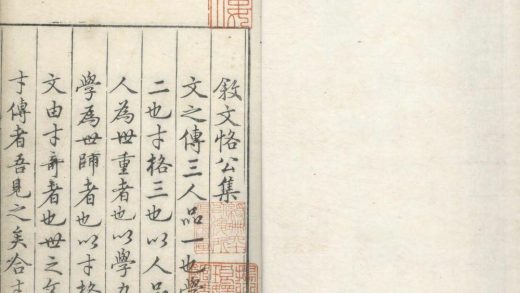 敘文恪公集
文之傳三人品一也學
二也才格三也以人品
人為世重者也以學
學為世師者也以才格
文由才奇者也世之
才傳者吾見之矣合